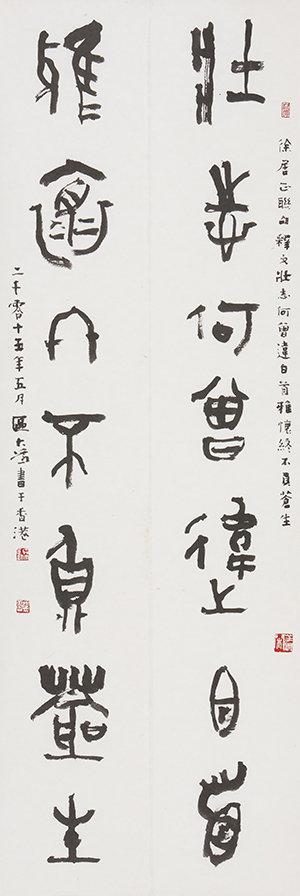 徐居正聯句釋文壯志何曾違白首雅懷終不負蒼生
壯志何曾違白首
雅懷終不負蒼生
二千零十五年五月區大為書于香港